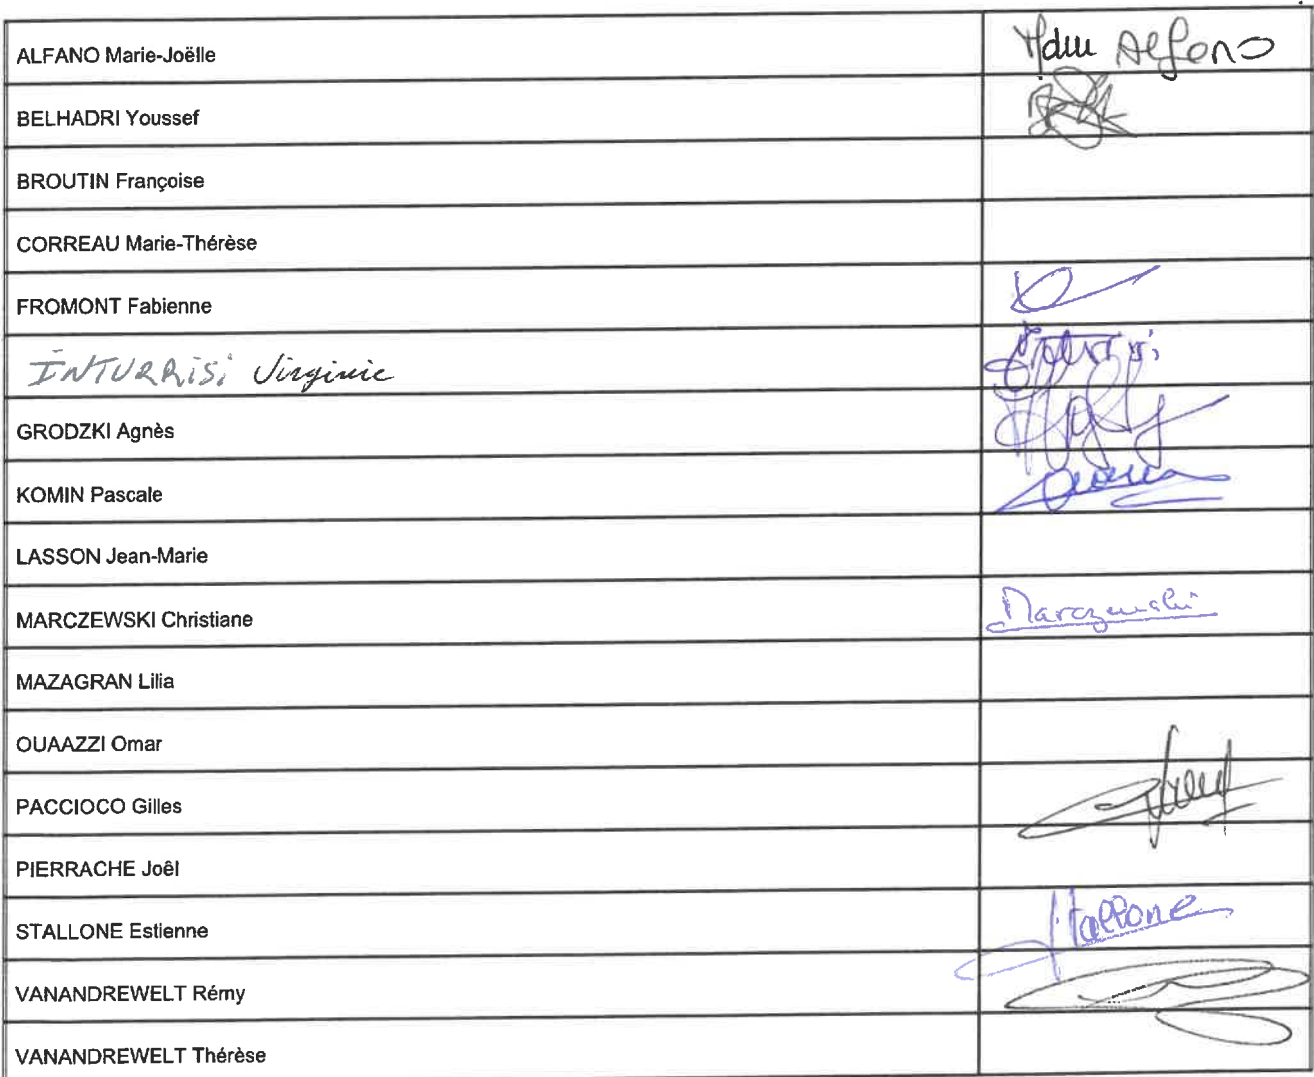 ALFANO Marie-Joëlle
Alfano
BELHADRI Youssef
BROUTIN Françoise
CORREAU Marie-Thérèse
FROMONT Fabienne
INTURRISI Virginie
GRODZKI Agnès
KOMIN Pascale
LASSON Jean-Marie
MARCZEWSKI Christiane
Marczewski
MAZAGRAN Lilia
OUAAZZI Omar
PACCIOCO Gilles
PIERRACHE Joël
STALLONE Estienne
Stallone
VANANDREWELT Rémy
VANANDREWELT Thérèse